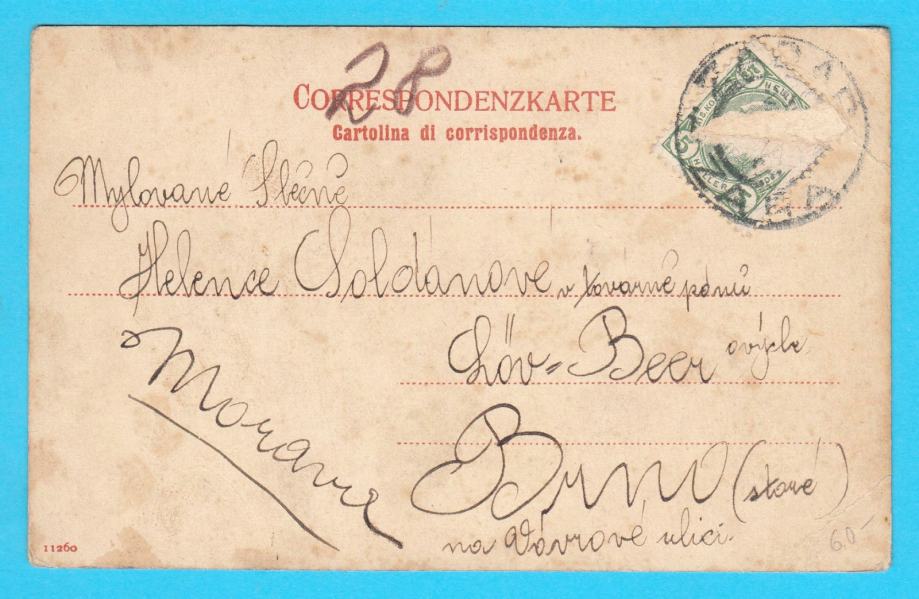 28
CORRESPONDENZKARTE
Cartolina di corrispondenza.
Mylované Slečně
Helence Soldánove v továrně pánů
Löv-Beer ových
Brno (staré)
na Vávrové ulici.
Morava
11260
60-